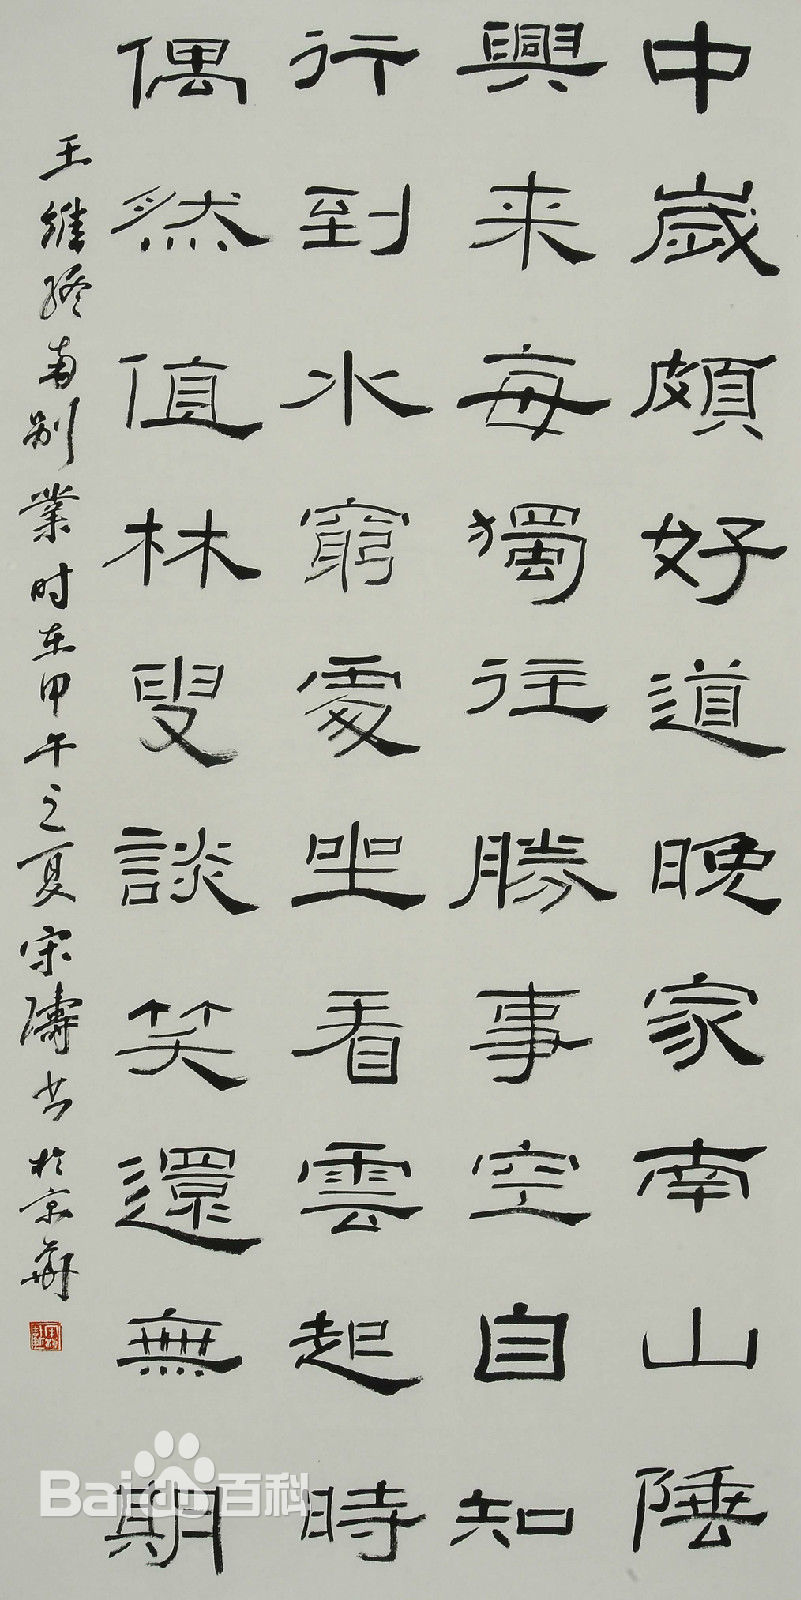 中歲頗好道晚家南山陲
興来每獨往勝事空自知
行到水窮處坐看雲起時
偶然值林叟談笑還無期
王維終南别業时在甲午之夏宋濤书於京華
Bai百科